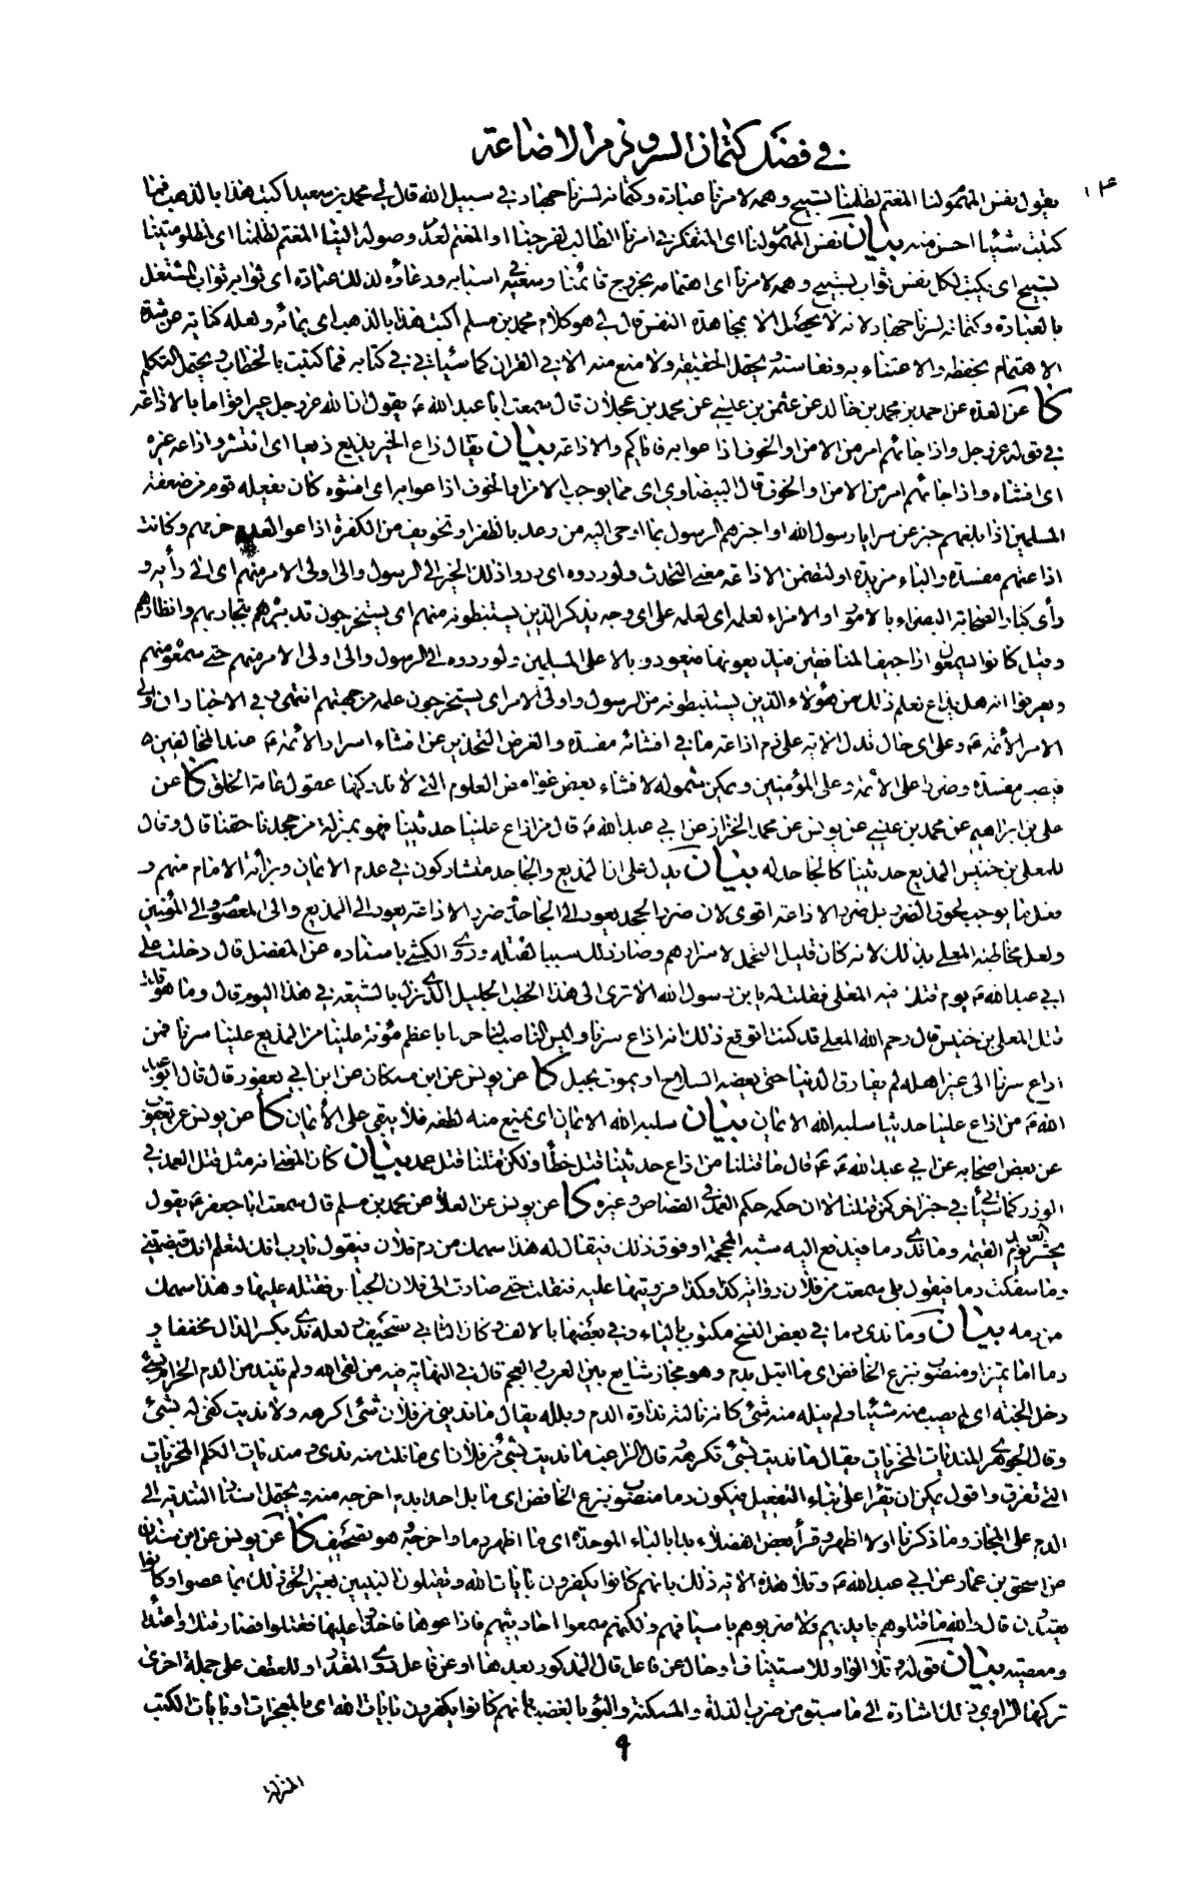 في فضل كتمان السر وذم الاضاعة
يقول نفس المهموم لنا المغتم لظلمنا تسبيح وهمه لامرنا عبادة وكتمانه لسرنا جهاد في سبيل الله قال لي محمد بن سعيد اكتب هذا بالذهب فما
كتبت شيئا احسن منه بيان نفس المهموم لنا اى المتفكر في امرنا الطالب لفرجنا او المغتم لعدم وصوله الينا المغتم لظلمنا اى لمظلوميتنا
تسبيح اى يكتب لكل نفس ثواب تسبيح وهمه لامرنا اى اهتمامه بخروج قائمنا وسعيه في اسبابه ودعاؤه لذلك عبادة اى ثوابه ثواب المشتغل
بالعبادة وكتمانه لسرنا جهاد لانه لا يحصل الا بمجاهدة النفس قال لي هو كلام محمد بن مسلم اكتب هذا بالذهب اى بمائه ولعله كناية عن شدة
الاهتمام بحفظه والاعتناء به ونفاسته ويحتمل الحقيقة ولا منع منه الا في القران كما سياتي في كتابه فما كتبت بالخطاب ويحتمل التكلم
كا عن العدة عن احمد بن محمد بن خالد عن عثمن بن عيسى عن محمد بن عجلان قال سمعت ابا عبد الله ع يقول ان الله عز وجل عير اقواما بالاذاعة
في قوله عز وجل واذا جائهم امر من الامن او الخوف اذاعوا به فاياكم والاذاعة بيان يقال ذاع الخبر يذيع ذيعا اى انتشر واذاعه غيره
اى افشاه واذا جائهم امر من الامن او الخوف قال البيضاوي اى مما يوجب الامن او الخوف اذاعوا به اى افشوه كان يفعله قوم من ضعفة
المسلمين اذا بلغهم خبر عن سرايا رسول الله او اخبرهم الرسول بما اوحي اليه من وعد بالظفر او تخويف من الكفرة اذاعوا لعدم حزمهم وكانت
اذاعتهم مفسدة والباء مزيدة او لتضمن الاذاعة معنى التحدث ولو ردوه اى ردوا ذلك الخبر الى الرسول والى اولى الامر منهم اى الى رأيه و
رأى كبار الصحابة البصراء بالامور او الامراء لعلمه اى لعلمه على اى وجه يذكر الذين يستنبطونه منهم اى يستخرجون تدبيرهم بتجاربهم وانظارهم
وقيل كانوا يسمعون اراجيف المنافقين فيذيعونها فيعود وبالا على المسلمين ولو ردوه الى الرسول والى اولى الامر منهم حتى سمعوه منهم
ويعرفوا انه هل يذاع لعلم ذلك من هؤلاء الذين يستنبطونه من الرسول واولى الامر اى يستخرجون علمه من جهتهم انتهى وفي الاخبار ان اولى
الامر الأئمة ع وعلى اى حال تدل الاية على ذم اذاعة ما في افشائه مفسدة والغرض التحذير عن افشاء اسرار الأئمة ع عند المخالفين
فيصير مفسدة وضررا على الأئمة وعلى المؤمنين ويمكن شموله لافشاء بعض غوامض العلوم التى لا تدركها عقول عامة الخلق كا عن
على بن ابراهيم عن محمد بن عيسى عن يونس عن محمد الخزاز عن ابي عبد الله ع قال من اذاع علينا حديثنا فهو بمنزلة من جحدنا حقنا قال وقال
للمعلى بن خنيس المذيع حديثنا كالجاحد له بيان يدل على ان المذيع والجاحد متشاركون في عدم الايمان وبرائة الامام منهم و
فعل ما يوجب لحوق الضرر بل ضرر الاذاعة اقوى لان ضرر الجحد يعود الى الجاحد وضرر الاذاعة يعود الى المذيع والى المعصوم والى المؤمنين
ولعل مخاطبة المعلى بذلك لانه كان قليل التحمل لاسرارهم وصار ذلك سببا لقتله وروى الكشي باسناده عن المفضل قال دخلت على
ابي عبد الله ع يوم قتل فيه المعلى فقلت له يا بن رسول الله الا ترى الى هذا الخطب الجليل الذى نزل بالشيعة في هذا اليوم قال وما هو قلت
قتل المعلى بن خنيس قال رحم الله المعلى قد كنت اتوقع ذلك انه اذاع سرنا وليس الناصب لنا حربا باعظم مؤنة علينا من المذيع علينا سرنا فمن
اذاع سرنا الى غير اهله لم يفارق الدنيا حتى يعضه السلاح او يموت بحبل كا عن يونس عن ابن مسكان عن ابن ابي يعفور قال قال ابو عبد
الله ع من اذاع علينا حديثنا سلبه الله الايمان بيان سلبه الله الايمان اى يمنع منه لطفه فلا يبقى على الأيمان كا عن يونس عن يعقوب
عن بعض اصحابه عن ابي عبد الله ع قال ما قتلنا من اذاع حديثنا قتل خطأ ولكن قتلنا قتل عمد بيان كان المعنى انه مثل قتل العمد في
الوزر كما سيأتي في خبر اخر كمن قتلنا لا ان حكمه حكم العمد في القصاص وغيره كا عن يونس عن العلا عن محمد بن مسلم قال سمعت ابا جعفر ع يقول
يحشر العبد يوم القيمة وما ندى دما فيدفع اليه شبه المحجمة او فوق ذلك فيقال له هذا سهمك من دم فلان فيقول يا رب انك لتعلم انك قبضتني
وما سفكت دما فيقول بلى سمعت من فلان رواية كذا وكذا فرويتها عليه فنقلت حتى صارت الى فلان الجبار فقتله عليها وهذا سهمك
من دمه بيان وما ندى دما في بعض النسخ مكتوب بالياء وفي بعضها بالالف وكان الثاني تصحيف ولعله ندى بكسر الدال مخففا و
دما اما تميز او منصوب بنزع الخافض اى ما ابتل بدم وهو مجاز شايع بين العرب والعجم قال في النهاية فيه من لقى الله ولم يتند من الدم الحرام بشئ
دخل الجنة اى لم يصب منه شيئا ولم ينله منه شئ كانه نالته نداوة الدم وبلله يقال ما نديني من فلان شئ اكرهه ولا نديت كفي له بشئ
وقال الجوهرى المنديات المخزيات يقال ما نديت بشئ تكرهه وقال الراغب ما نديت بشئ من فلان اى ما نلت منه ندى ومنديات الكلم المخزيات
التى تعرق واقول يمكن ان يقرأ على بناء التفعيل فيكون دما منصوبا بنزع الخافض اى ما بل احدا بدم اخرجه منه ويحتمل اسناد التندية الى
الدم على المجاز وما ذكرنا اولا اظهر وقرأ بعض الفضلاء بدا بالباء الموحدة اى ما اظهر دما واخرجه وهو تصحيف كا عن يونس عن ابن سنان
عن اسحق بن عمار عن ابي عبد الله ع وتلا هذه الاية ذلك بانهم كانوا يكفرون بايات الله ويقتلون النبيين بغير الحق ذلك بما عصوا وكانوا
يعتدون قال والله ما قتلوهم بايديهم ولا ضربوهم باسيافهم ولكنهم سمعوا احاديثهم فاذاعوها فاخذوا عليها فقتلوا فصار قتلا واعتداء
ومعصية بيان قوله وتلا الواو للاستيناف او حال عن فاعل قال المذكور بعدها او عن فاعل روى المقدر او للعطف على جملة اخرى
تركها الراوي ذلك اشارة الى ما سبق من ضرب الذلة والمسكنة والبؤ بالغضب بانهم كانوا يكفرون بايات الله اى بالمعجزات او بايات الكتب
٩
المنزلة